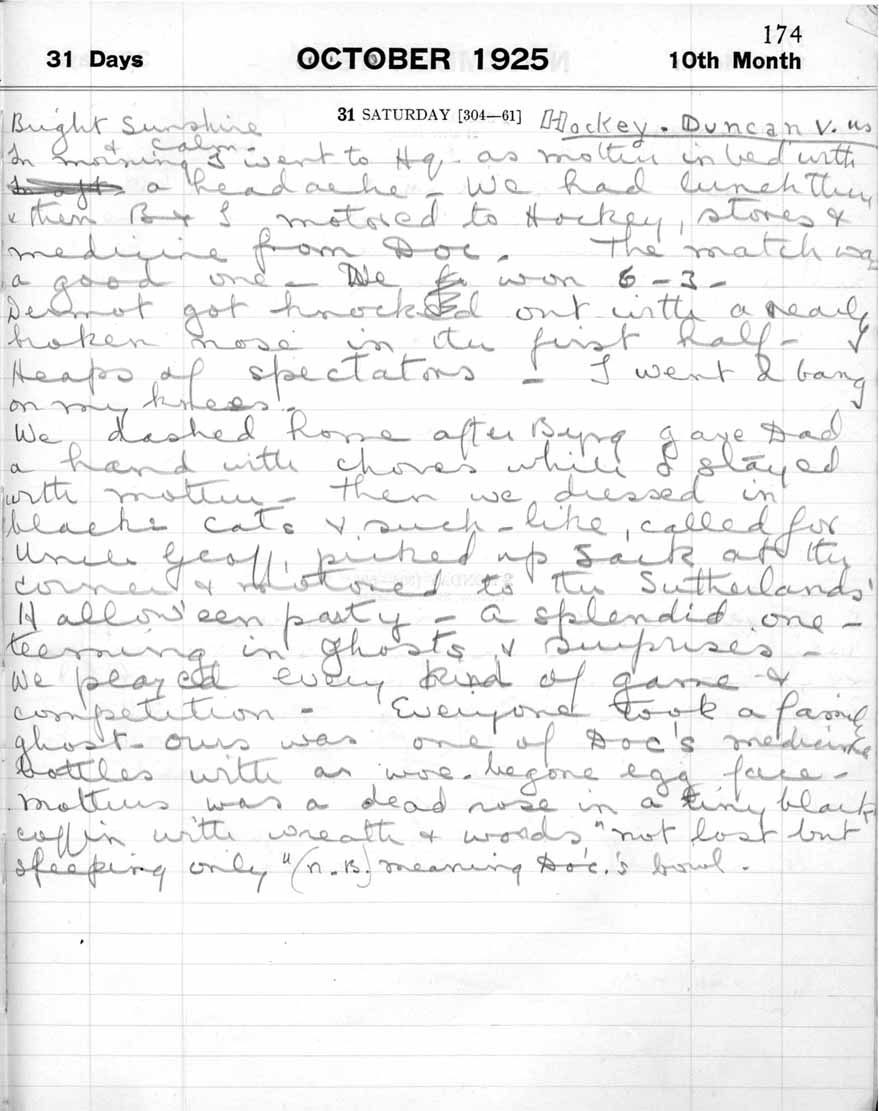 174
31 Days OCTOBER 1925 10th Month
31 SATURDAY [304—61] Hockey. Duncan v. us
Bright Sunshine
& calm.
In morning I went to Hq. as mother in bed with
a headache – We had lunch then
& then B & I motored to Hockey, stores &
medicine from Doc. The match was
a good one – We won 6–3 –
Dermot got knocked out with a nearly
broken nose in the first half –
Heaps of spectators – I went bang
on my knees –
We dashed home after Byng gave Dad
a hand with chores while I stayed
with mother – Then we dressed in
black cats & such-like, called for
Uncle Geoff, picked up Jack at the
corner & motored to the Sutherlands'
Hallow'een party – a splendid one –
teeming in ghosts & surprises –
We played every kind of game &
competition – Everyone took a family
ghost – ours was one of Doc's medicine
bottles with an woe-begone egg face –
Mothers was a dead rose in a tiny black
coffin with wreath & words "not lost but
sleeping only" (N.B.) meaning Doc.'s bowl.